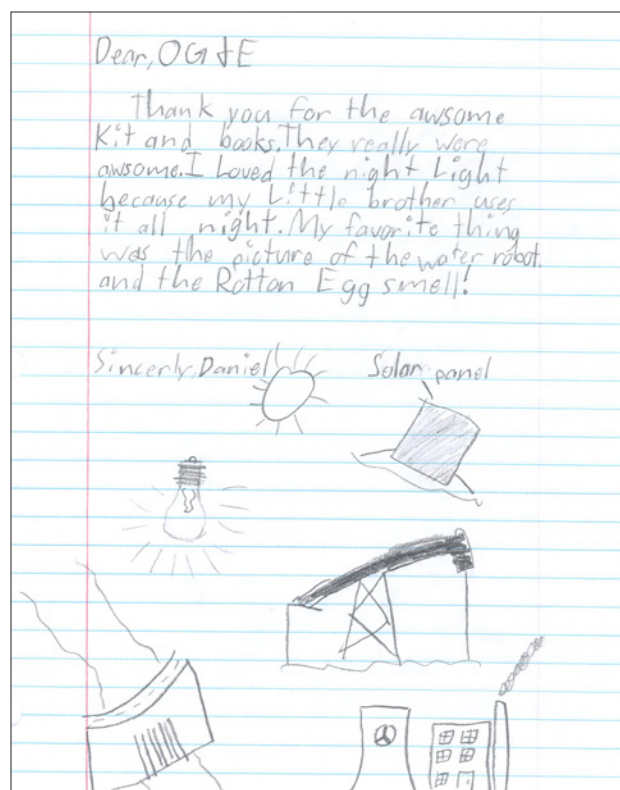 Dear, OG&E
Thank you for the awsome
Kit and books. They really were
awsome. I Loved the night Light
because my Little brother uses
it all night. My favorite thing
was the picture of the water robot.
and the Rotton Egg smell!
Sincerly, Daniel
Solar panel